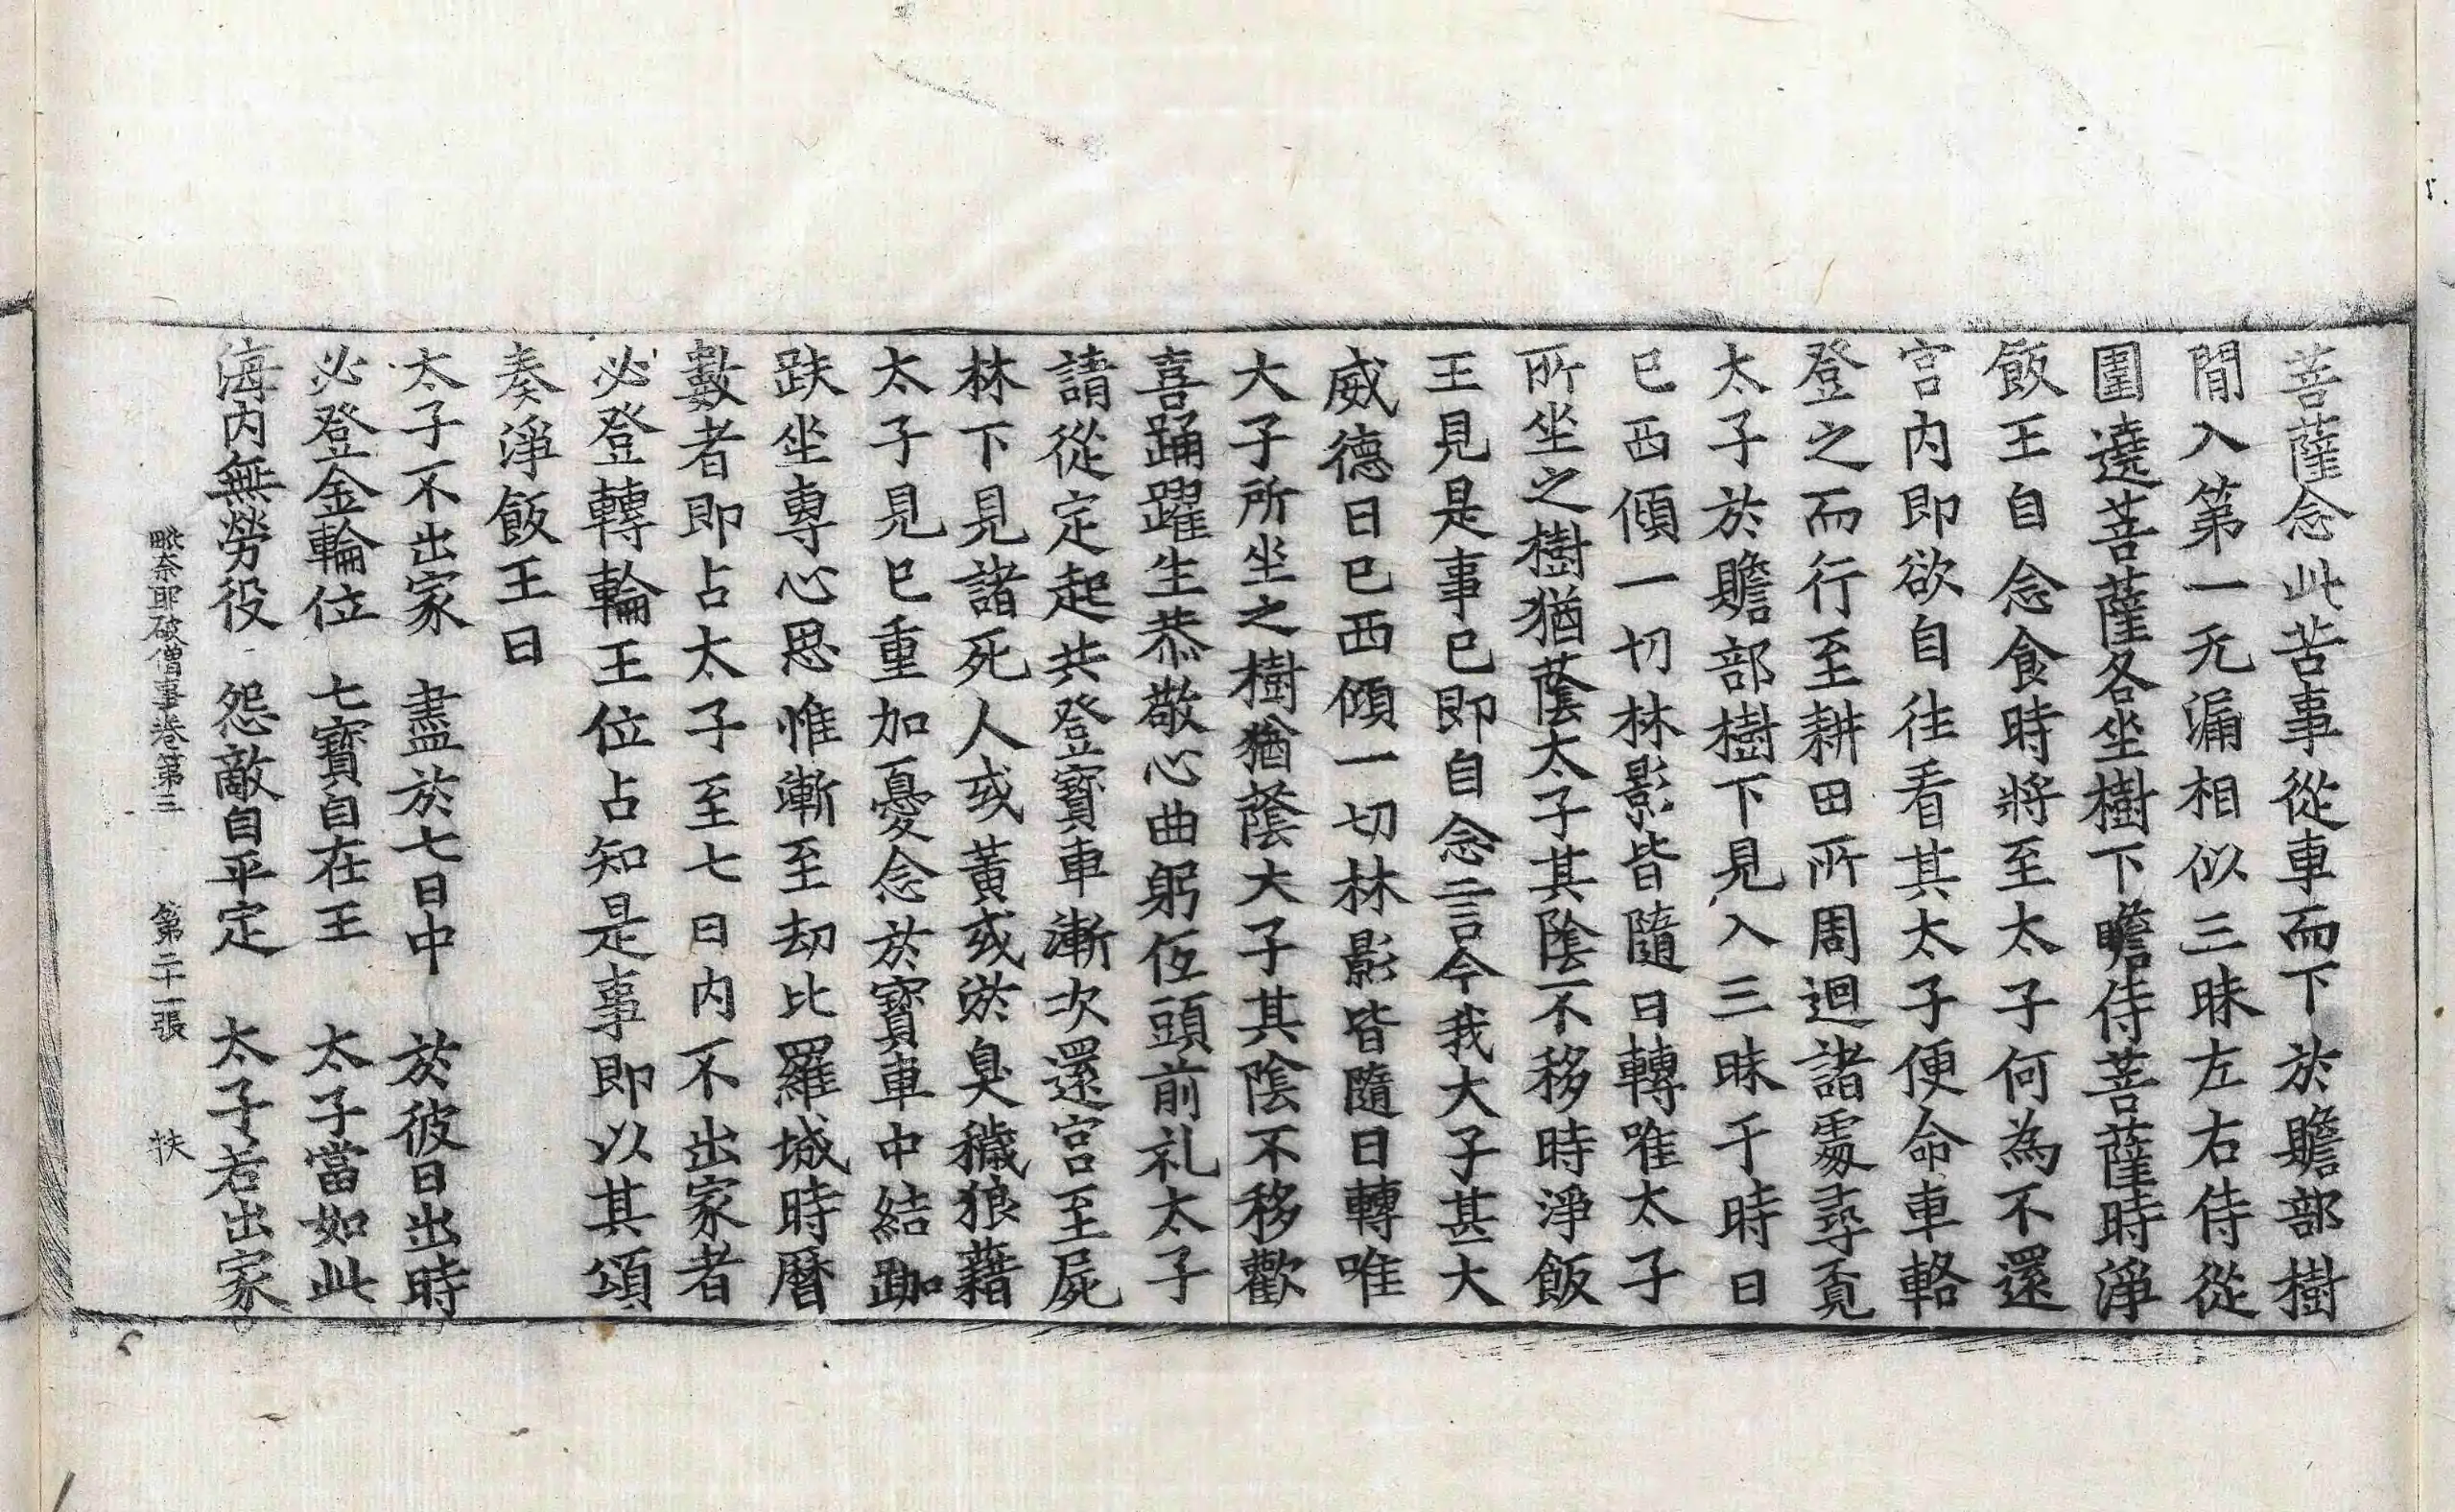 菩薩念此苦事從車而下於贍部樹
閒入第一无漏相似三昧左右侍從
圍遶菩薩各坐樹下瞻侍菩薩時淨
飯王自念食時將至太子何為不還
宮内即欲自往看其太子便命車輅
登之而行至耕田所周迴諸處尋覓
太子於贍部樹下見入三昧于時日
已西傾一切林影皆隨日轉唯太子
所坐之樹猶蔭太子其陰不移時淨飯
王見是事已即自念言今我大子甚大
威德日已西傾一切林影皆隨日轉唯
大子所坐之樹猶蔭大子其陰不移歡
喜踊躍生恭敬心曲躬伍頭前礼太子
請從定起共登寶車漸次還宮至屍
林下見諸死人或黃或淤臭穢狼藉
太子見已重加憂念於寶車中結跏
趺坐專心思惟漸至劫比羅城時曆
數者即占太子至七日内不出家者
必登轉輪王位占知是事即以其頌
奏淨飯王曰
太子不出家　盡於七日中　於彼日出時
必登金輪位　七寶自在王　太子當如此
海内無勞役　怨敵自平定　太子若出家
毗奈耶破僧事卷第三　第二十一張　扶